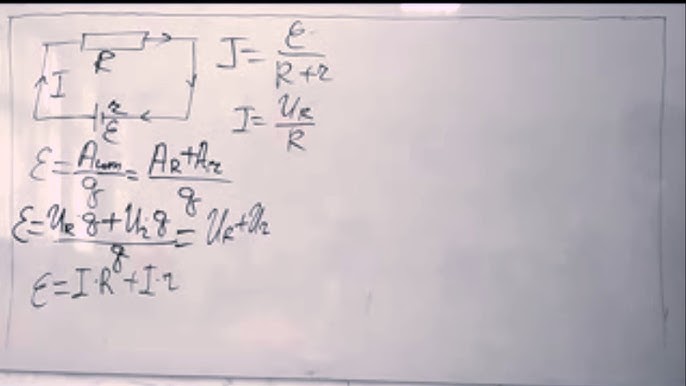 R
I
r
ε
I = ε / (R + r)
I = U_R / R
ε = A_ист / q = (A_R + A_r) / q
ε = (U_R · q + U_r · q) / q = U_R + U_r
ε = I · R + I · r